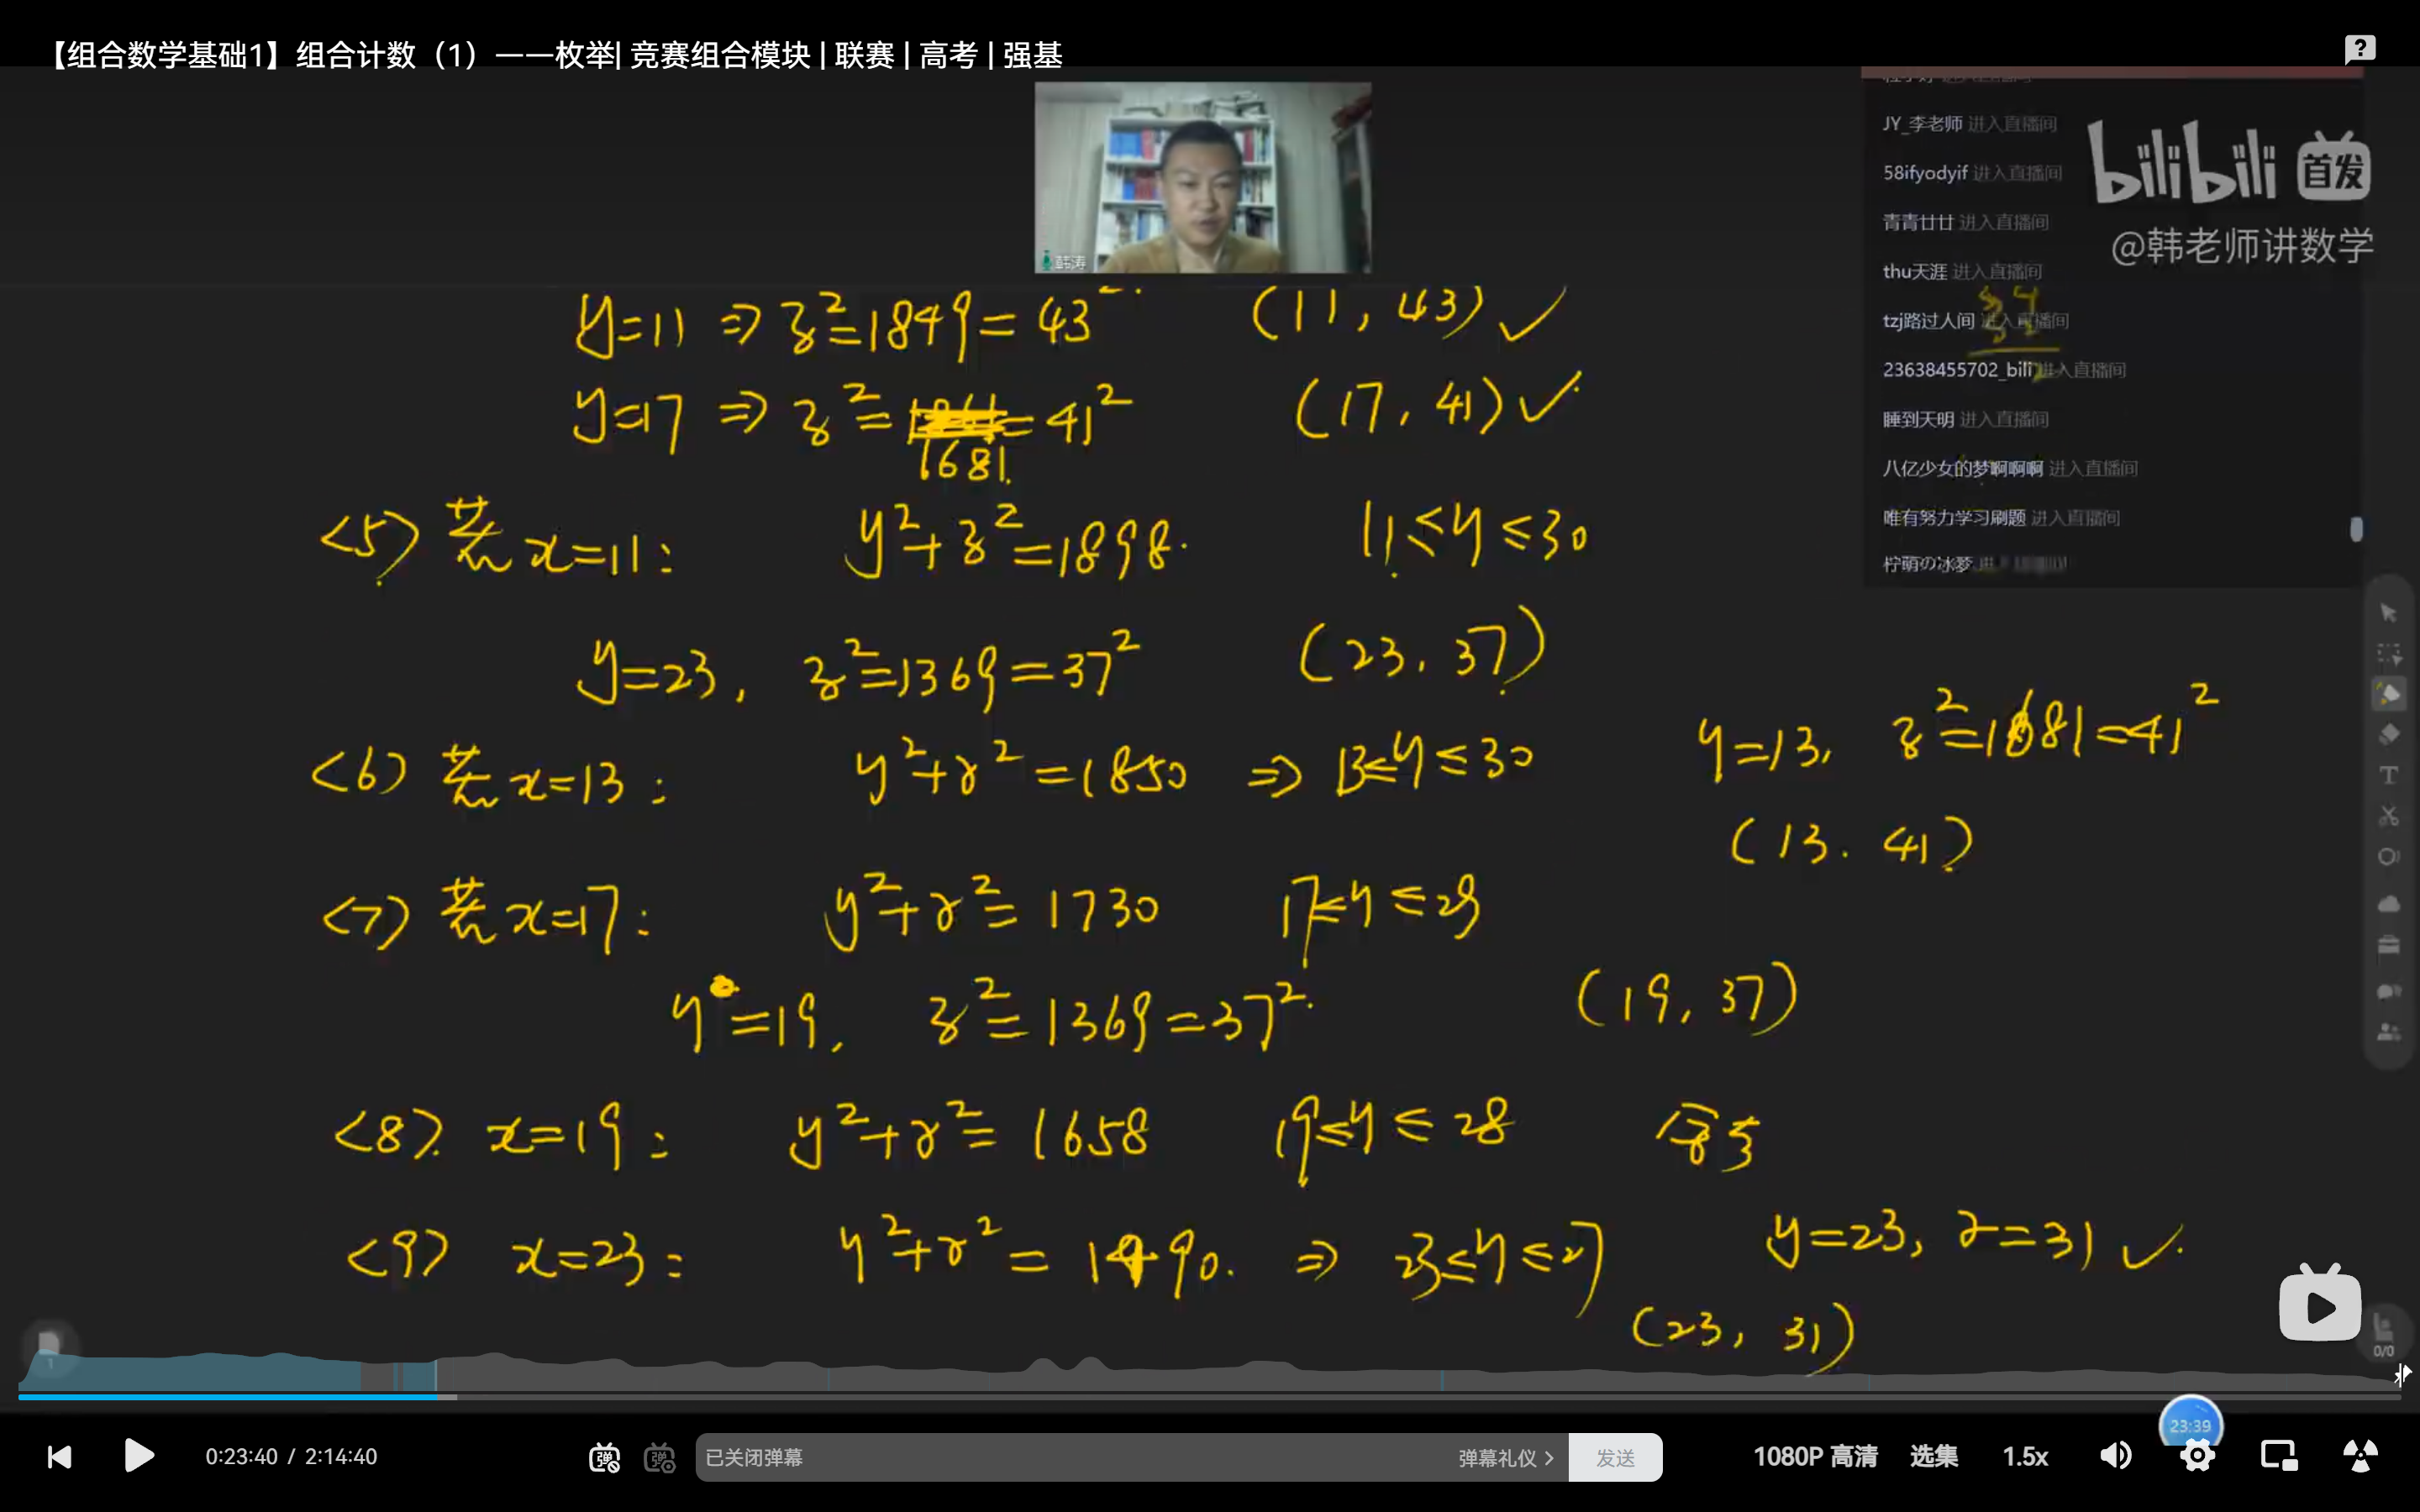 【组合数学基础1】组合计数（1）——枚举| 竞赛组合模块 | 联赛 | 高考 | 强基
JY_李老师 进入直播间
58ifyodyif 进入直播间
青青廿廿 进入直播间
thu天涯 进入直播间
tzj路过人间 进入直播间
23638455702_bili 进入直播间
睡到天明 进入直播间
八亿少女的梦啊啊啊 进入直播间
唯有努力学习刷题 进入直播间
柠萌の冰梦
bilibili 首发
@韩老师讲数学
韩涛
y=11 ⇒ z²=1849=43² (11, 43) ✓
y=17 ⇒ z²= =41² (17, 41) ✓
1681.
<5> 若 x=11: y²+z²=1898. 11≤y≤30
y=23, z²=1369=37² (23, 37)
<6> 若 x=13: y²+z²=1850 ⇒ 13≤y≤30 y=13, z²=1681=41²
(13. 41)
<7> 若 x=17: y²+z²=1730 17≤y≤29
y=19, z²=1369=37². (19, 37)
<8>. x=19: y²+z²=1658 19≤y≤28
<9> x=23: y²+z²=1490. ⇒ 23≤y≤27 y=23, z=31 ✓.
(23, 31)
1
0/0
23:39
0:23:40 / 2:14:40
弹 弹
已关闭弹幕 弹幕礼仪 > 发送
1080P 高清 选集 1.5x